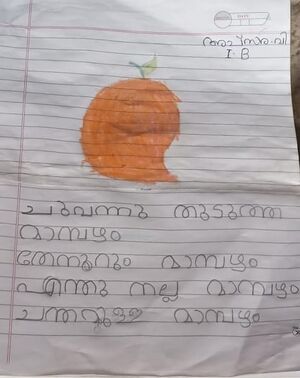 I-B
ചുവന്നു തുടുത്ത
മാമ്പഴം
തേനൂറും മാമ്പഴം
എന്തു നല്ല മാമ്പഴം
ചന്തമുള്ള മാമ്പഴം